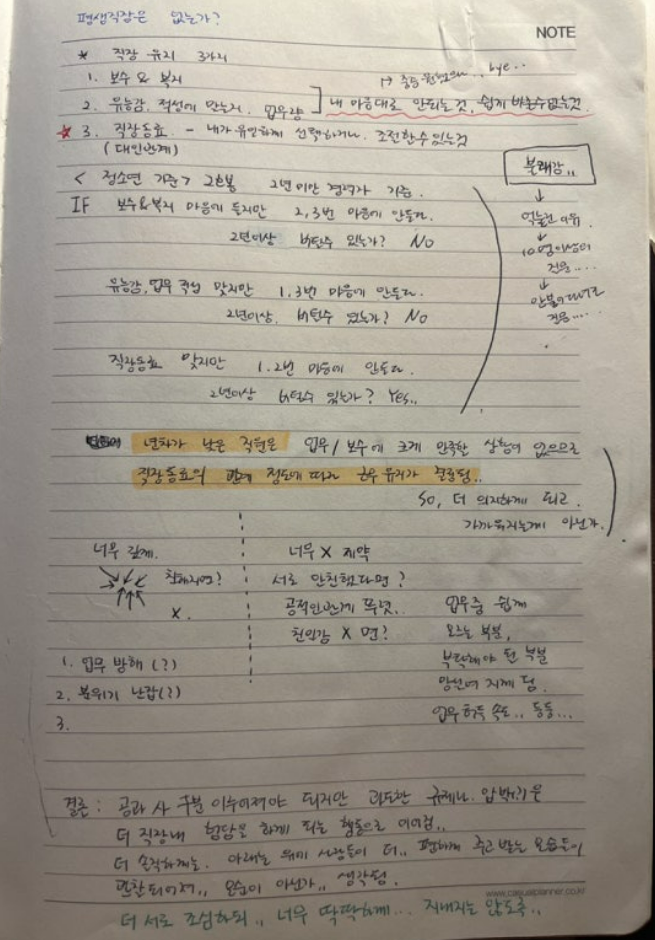 평생직장은 없는가?
NOTE
* 직장 유지 3가지
1. 보수 & 복지
↦ 중등 원장으... bye..
2. 유능감. 적성에 맞는지. 업무량 ] 내 마음대로 안되는 것, 쉽게 바꿀수없는것.
* 3. 직장동료 - 내가 유일하게 선택하거나. 조절할수있는것
(대인관계)
< 정소연 기준 > 2호봉 2년미만 경력자 기준.
불쾌감..
IF 보수&복지 마음에 들지만 2, 3번 마음에 안든다.
2년이상 버틸수 있는가? No
↓
억눌린 이유.
↓
10명이상의
전용....
↓
전용.....
유능감, 업무 적성 맞지만 1, 3번 마음에 안든다.
2년이상. 버틸수 있는가? No
직장동료 맞지만 1. 2번 마음에 안든다.
2년이상 버틸수 있는가? Yes..
년차가 낮은 직원은 업무/보수에 크게 만족한 상황이 없으므로
직장동료의 관계 정도에 따라 근무 유지가 결정됨..
So, 더 의지하게 되고.
가까워지는게 아닌가.
너무 깊게.
친해지면?
X.
너무 X 제약
서로 안친했다면?
공적인관계 뚜렷..
친밀감 X 면?
업무중 쉽게
모르는 부분,
부탁해야 될 부분
망설여 지게 됨.
업무허득 속도.., 등등...
1. 업무 방해 (?)
2. 분위기 난잡(?)
3.
결론 : 공과 사 구분 이루어져야 되지만 과도한 규제나. 압박(?)은
더 직장내 험담을 하게 되는 행동으로 이어짐..
더 솔직하게는. 아래는 위에 사람들이 더.. 편하게 주고 받는 모습들이
관찰되어져.., 모순이 아닌가.. 생각됨.
www.casualplanner.co.kr
더 서로 조심하되.., 너무 딱딱하게... 지내지는 않도록..